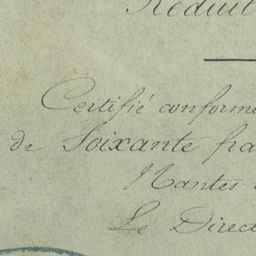 Réduit
Certifié conforme
de Soixante fra
Nantes
Le Direc